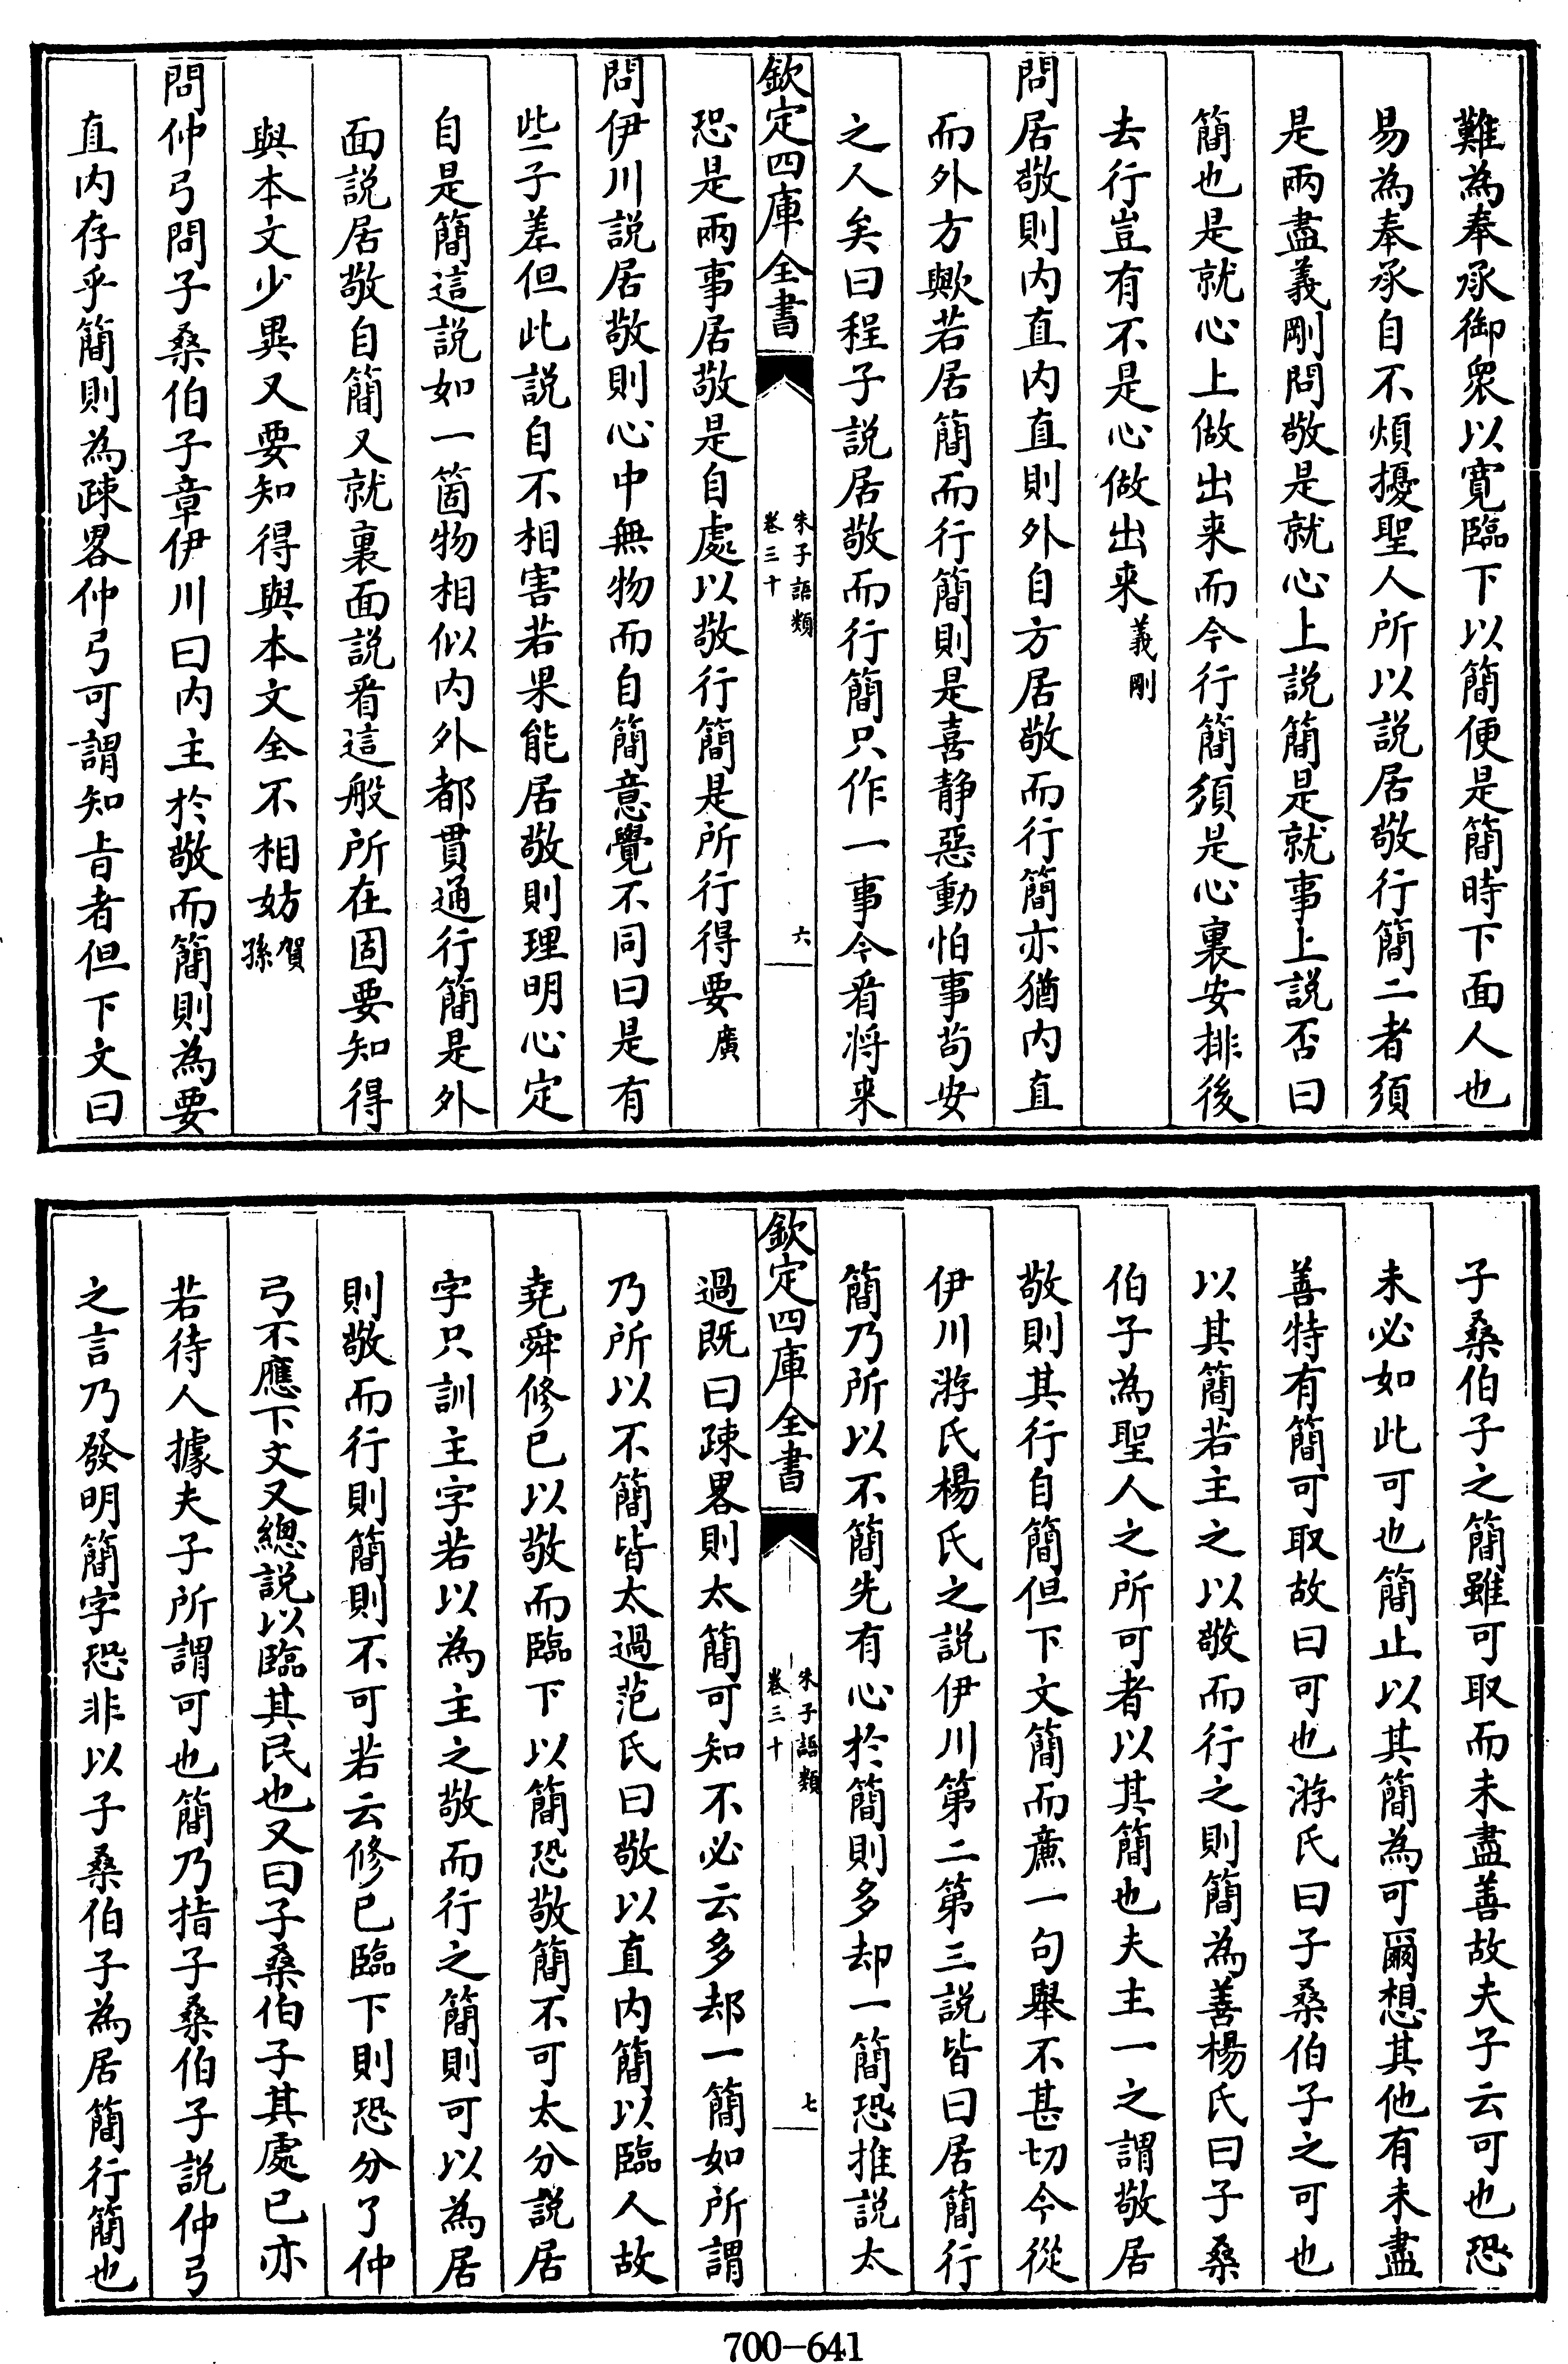 難為奉承御衆以寛臨下以簡便是簡時下面人也
易為奉承自不煩擾聖人所以説居敬行簡二者須
是兩盡義剛問敬是就心上説簡是就事上説否曰
簡也是就心上做出来而今行簡須是心裏安排後
去行豈有不是心做出来義剛
問居敬則内直内直則外自方居敬而行簡亦猶内直
而外方歟若居簡而行簡則是喜静惡動怕事苟安
之人矣曰程子説居敬而行簡只作一事今看将来
欽定四庫全書
朱子語類
卷三十
六
恐是兩事居敬是自處以敬行簡是所行得要廣
問伊川説居敬則心中無物而自簡意覺不同曰是有
些子差但此説自不相害若果能居敬則理明心定
自是簡這説如一箇物相似内外都貫通行簡是外
面説居敬自簡又就裏面説看這般所在固要知得
與本文少異又要知得與本文全不相妨賀孫
問仲弓問子桑伯子章伊川曰内主於敬而簡則為要
直内存乎簡則為疎畧仲弓可謂知㫖者但下文曰
子桑伯子之簡雖可取而未盡善故夫子云可也恐
未必如此可也簡止以其簡為可爾想其他有未盡
善特有簡可取故曰可也游氏曰子桑伯子之可也
以其簡若主之以敬而行之則簡為善楊氏曰子桑
伯子為聖人之所可者以其簡也夫主一之謂敬居
敬則其行自簡但下文簡而亷一句舉不甚切今從
伊川游氏楊氏之説伊川第二第三説皆曰居簡行
簡乃所以不簡先有心於簡則多却一簡恐推説太
欽定四庫全書
朱子語類
卷三十
七
過既曰疎畧則太簡可知不必云多却一簡如所謂
乃所以不簡皆太過范氏曰敬以直内簡以臨人故
堯舜修已以敬而臨下以簡恐敬簡不可太分説居
字只訓主字若以為主之敬而行之簡則可以為居
則敬而行則簡則不可若云修已臨下則恐分了仲
弓不應下文又總説以臨其民也又曰子桑伯子其處已亦
若待人據夫子所謂可也簡乃指子桑伯子説仲弓
之言乃發明簡字恐非以子桑伯子為居簡行簡也
700-641